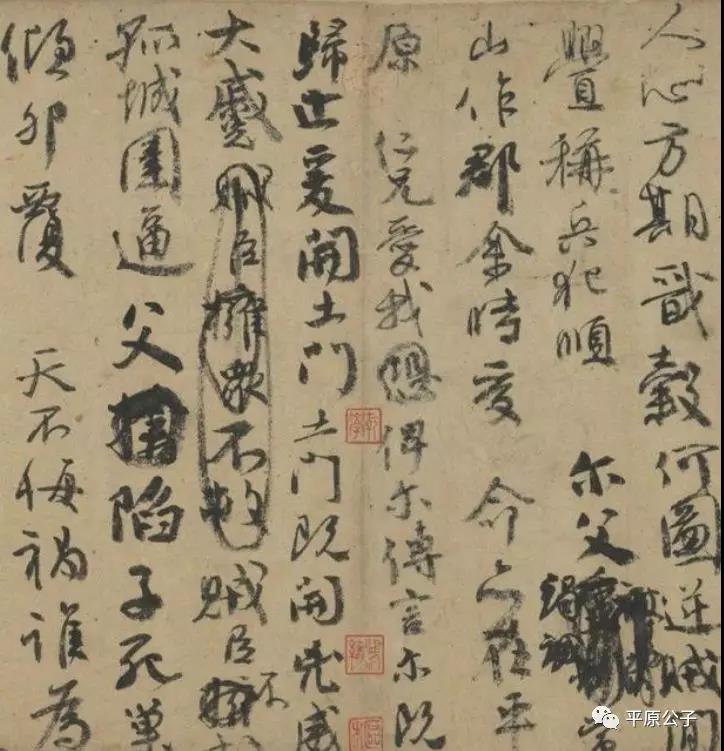 人心方期戩穀何圖逆賊間
舋稱兵犯順 尔父竭誠常
山作郡余時受 命亦在平
原 仁兄愛我恐俾尔傳言尔既
歸止爰開土門土門既開凶威
大蹙賊臣擁衆不救賊臣不
孤城圍逼父陷子死巢
傾卵覆 天不悔禍誰為
平原公子